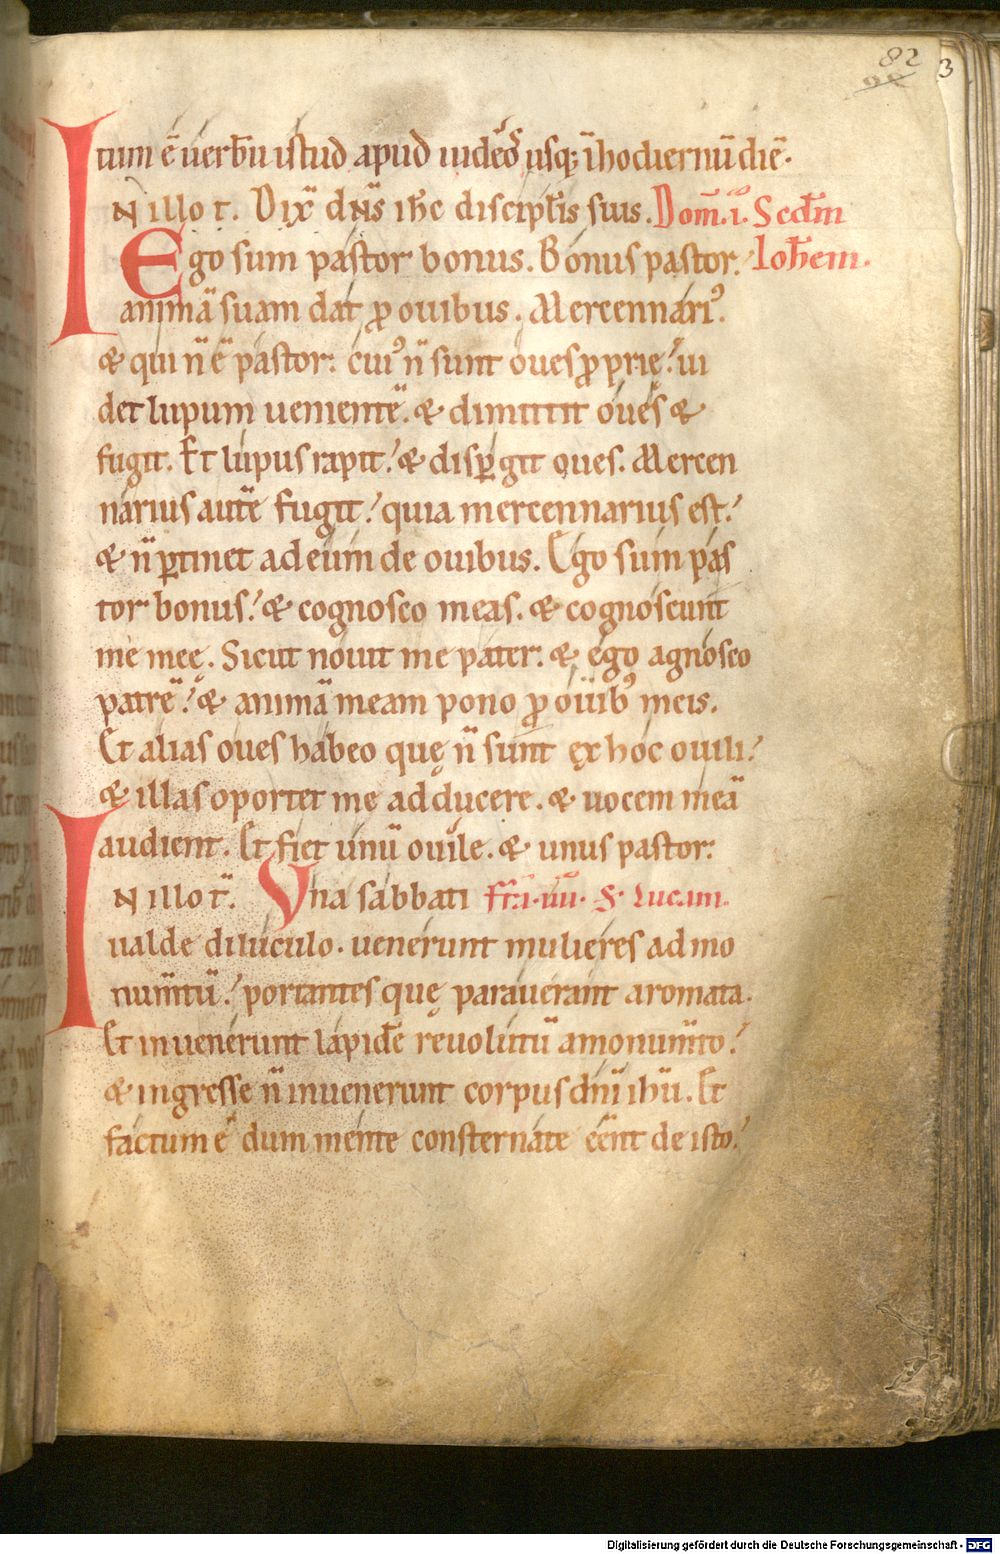 82
3
tum ē uerbū istud apud iudeos usq; ī hodiernū diē.
IN illo t̄. Dix̄ dn̄s ih̄c discipl̄is suis. Dom̄. i. Scd̄m
Ego sum pastor bonus. Bonus pastor. Ioh̄em.
animā suam dat ꝓ ouibus. Mercennari᾿
& qui n̄ ē pastor. cui᾿ n̄ sunt oues ꝓprię. ui
det lupum uenientē. & dimittit oues &
fugit. Et lupus rapit. & disꝑgit oues. Mercen
narius autē fugit. quia mercennarius est.
& n̄ ꝑtinet ad eum de ouibus. Ego sum pas
tor bonus. & cognosco meas. & cognoscunt
me meę. Sicut nouit me pater. & ego agnosco
patrē. & animā meam pono ꝓ ouib᾿ meis.
Et alias oues habeo quę n̄ sunt ex hoc ouili.
& illas oportet me adducere. & uocem meā
audient. Et fiet unū ouile. & unus pastor.
IN illo t̄. Una sabbati fr̄a. iiii. S. Lucam.
ualde diluculo. uenerunt mulieres ad mo
num̄tū. portantes quę parauerant aromata.
Et inuenerunt lapidē reuolutū a monum̄to.
& ingresse n̄ inuenerunt corpus dn̄i ih̄u. Et
factum ē dum mente consternate eēnt de isto.
Digitalisierung gefördert durch die Deutsche Forschungsgemeinschaft - DFG